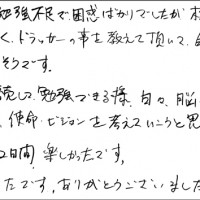 勉強不足で困惑ばかりでしたが
く、ドラッカーの事を教えて頂いて、
そうです。
続して勉強できる様、日々、脳
、使命・ビジョンを考えていこうと思
2日間 楽しかったです。
たです。ありがとうございました